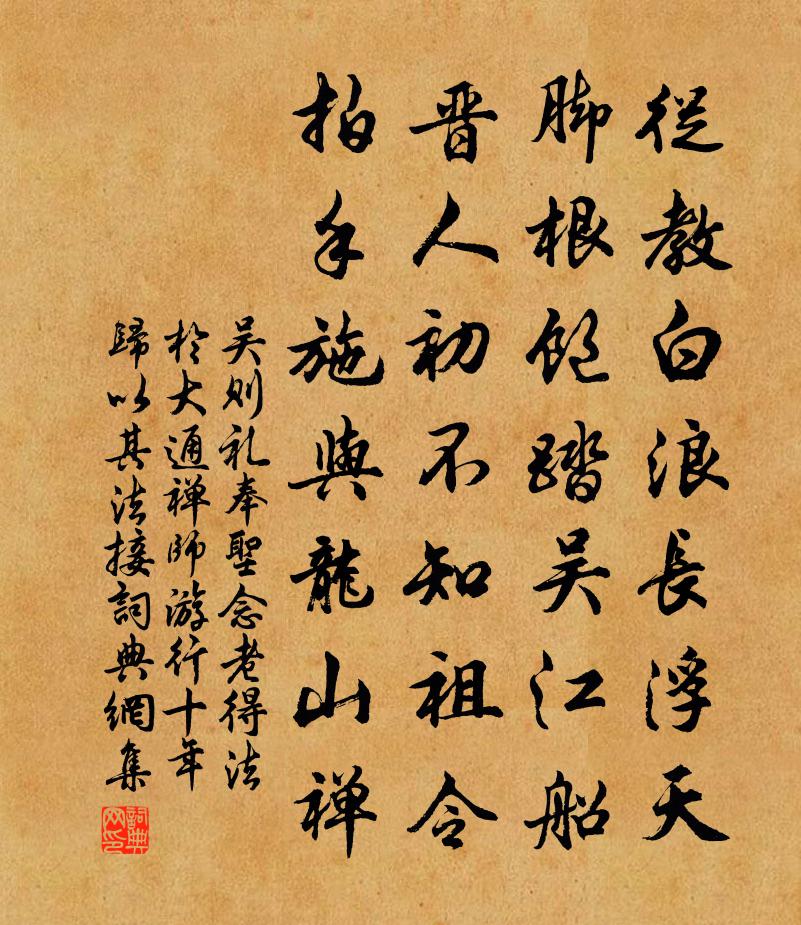 從教白浪長浮天
脚根飽踏吴江船
晋人初不知祖令
拍手施與龍山禅
吴则礼奉聖念老得法
於大通禅師游行十年
歸以其法接詞典網集
詞典网印